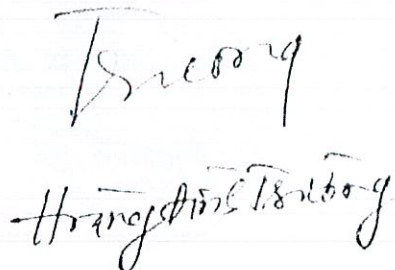 Trương
Hoàng Đình Trường